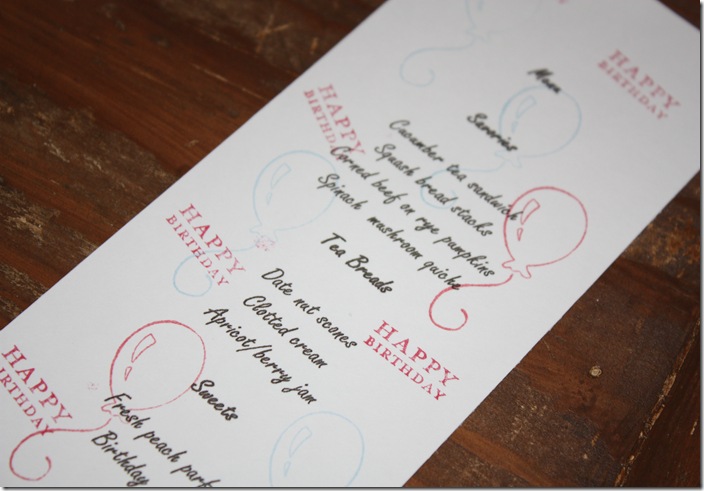 HAPPY
BIRTHDAY
Menu
Savories
HAPPY
BIRTHDAY
Cucumber tea sandwich
Squash bread stacks
Corned beef on rye pumpkins
Spinach mushroom quiche
Tea Breads
HAPPY
BIRTHDAY
Date nut scones
Clotted cream
Apricot/berry jam
HAPPY
BIRTHDAY
Sweets
Fresh peach parf
Birthday
HAPPY
BIRTHDAY